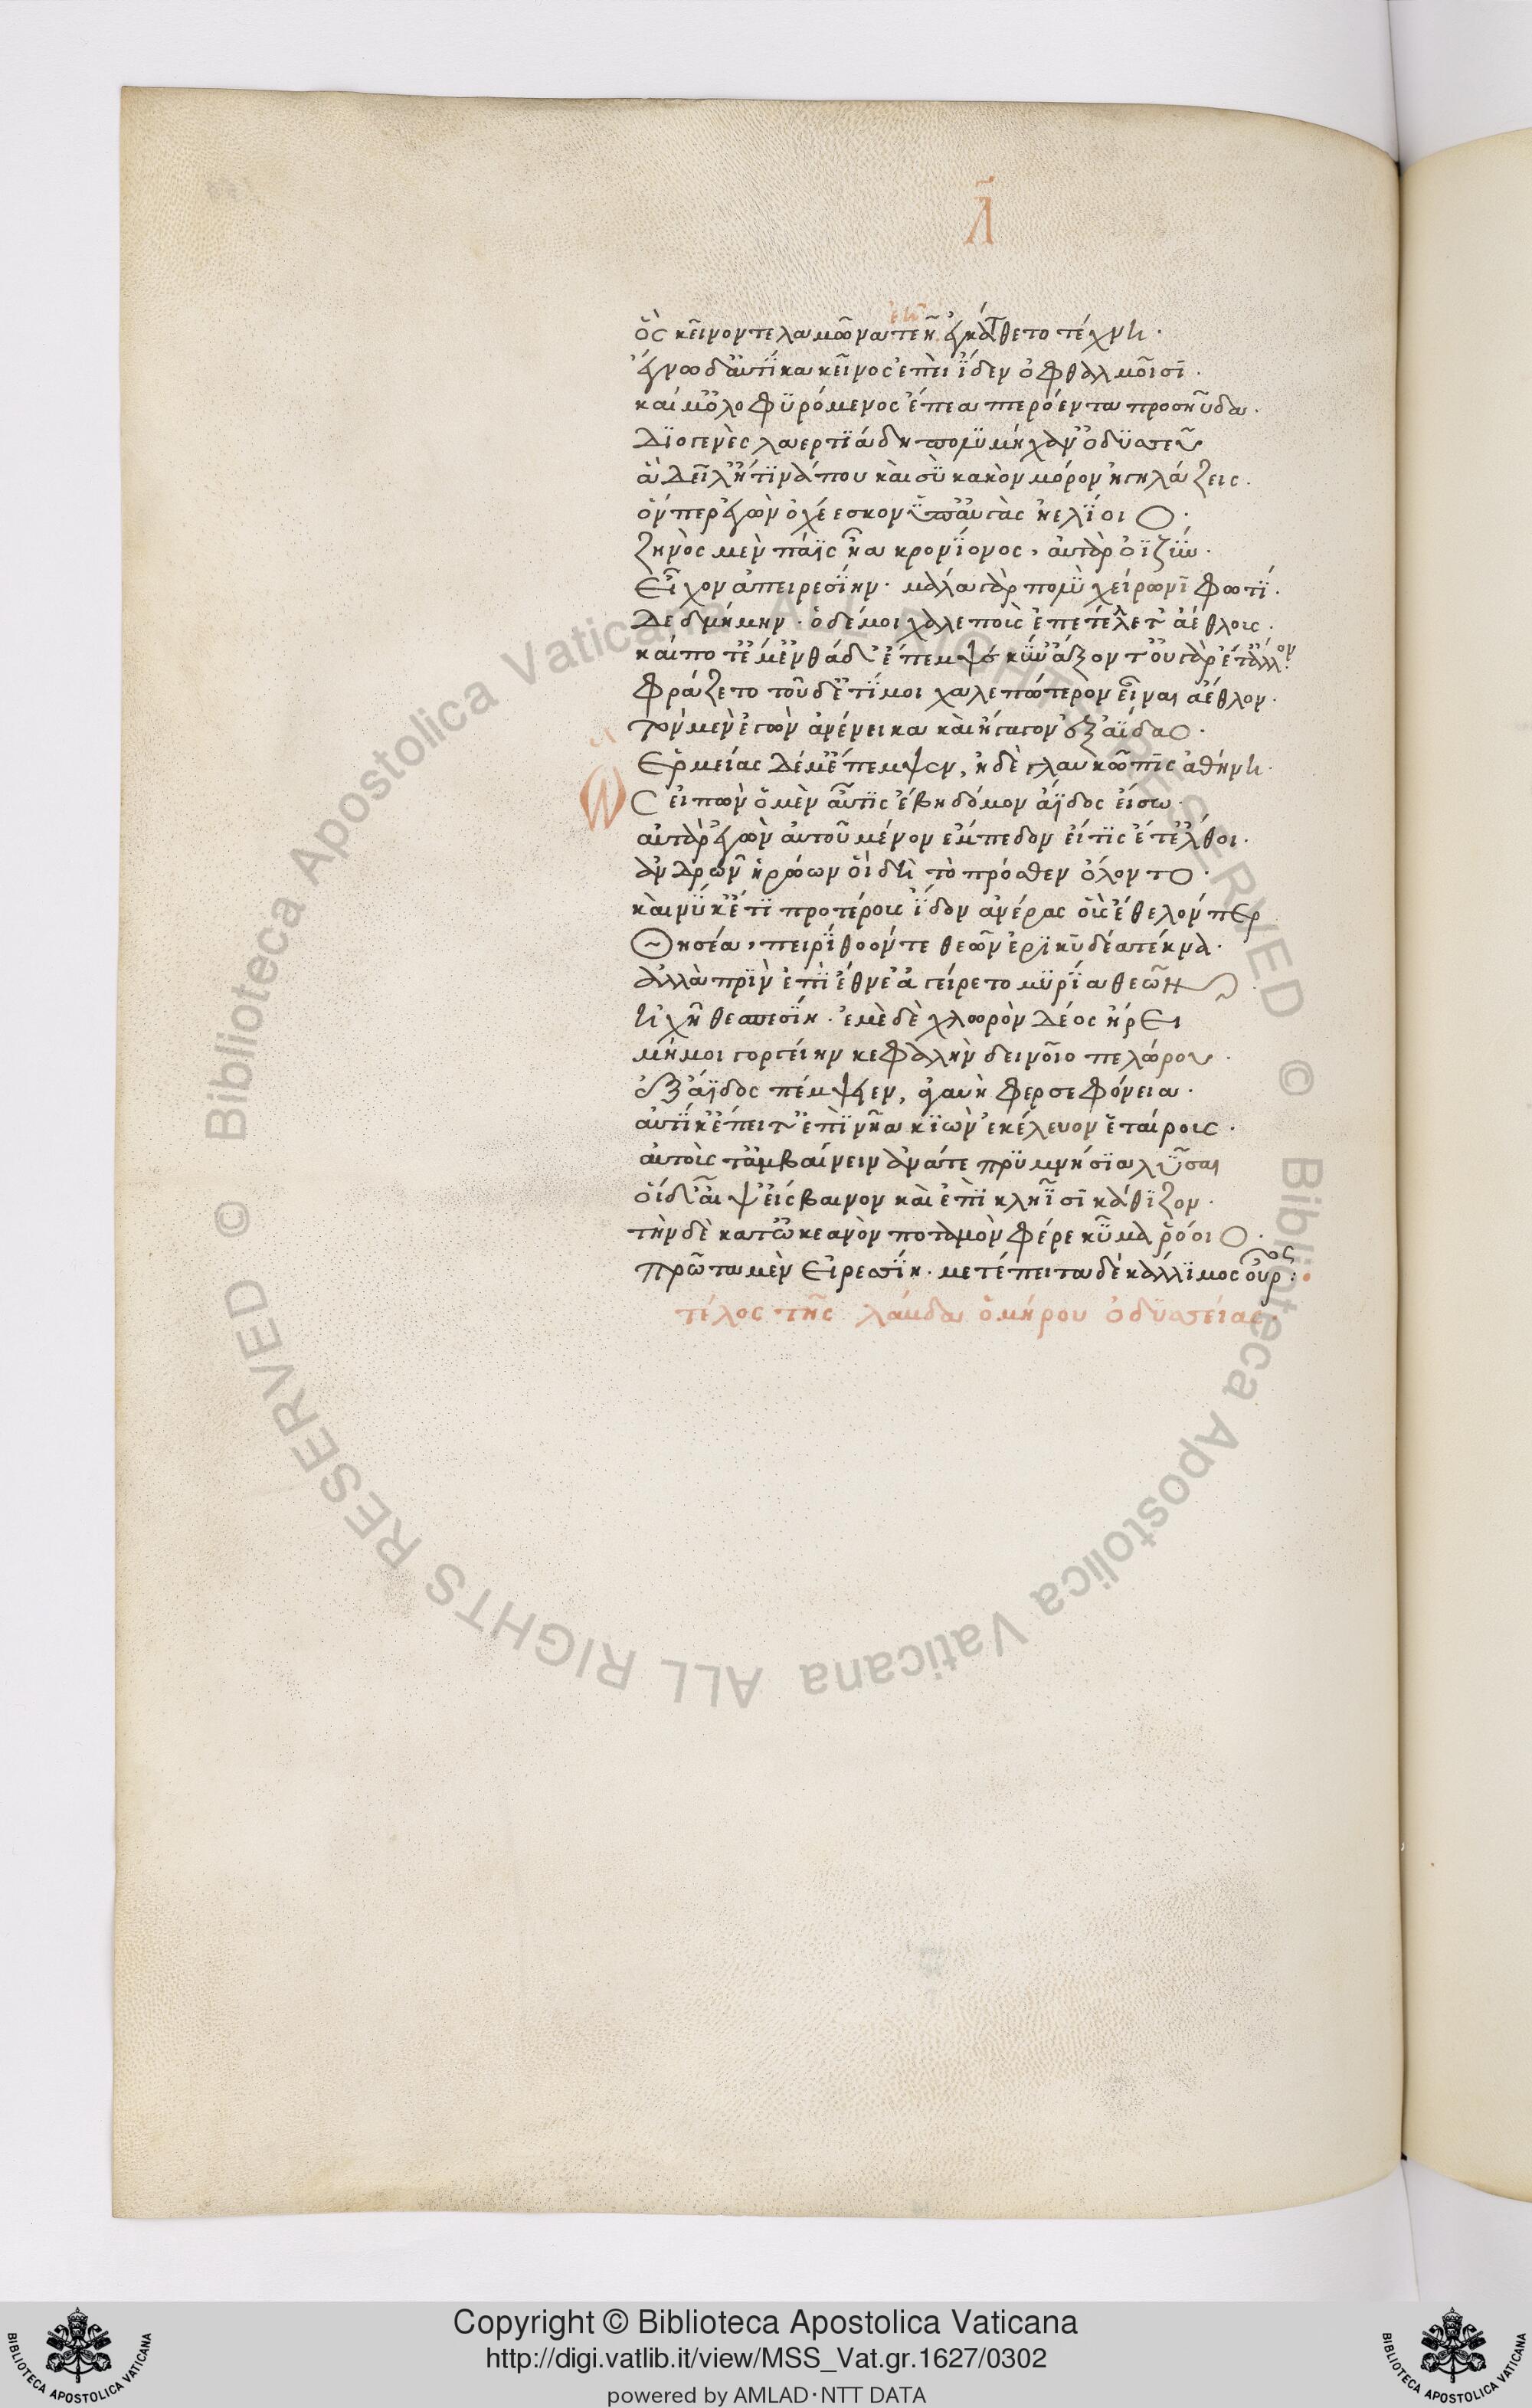 Λ
ὃς κεῖνον τελαμῶνα τεῆ ἐγκάτθετο τέχνη·
ἔγνω δ' αὐτίκα κεῖνος ἐπεὶ ἴδεν ὀφθαλμοῖσι·
καί μ' ὀλοφυρόμενος ἔπεα πτερόεντα προσηύδα·
Διογενὲς λαερτιάδη πολυμήχαν' ὀδυσσεῦ
ἆ δείλ' ἤ τινά που καὶ σὺ κακὸν μόρον ἡγηλάζεις·
ὅν περ ἐγὼν ὀχέεσκον ὑπ' αὐγὰς ἠελίοιο·
ζηνὸς μὲν πάϊς ἦα κρονίονος, αὐτὰρ ὀϊζὺν·
Εἶχον ἀπειρεσίην· μάλα γὰρ πολὺ χείρωνι φωτί·
Δεδμήμην· ὁ δέ μοι χαλεποὺς ἐπετέλετ' ἀέθλους·
καί ποτέ μ' ἐνθάδ' ἔπεμψε κύν' ἄξοντ' οὐ γὰρ ἔτ' ἄλλον·
φράζετο τοῦδέ τί μοι χαλεπώτερον εἶναι ἀέθλον·
τὸν μὲν ἐγὼν ἀνένεικα καὶ ἤγαγον ἐξ ἀΐδαο·
Ἑρμείας δέ μ' ἔπεμψεν, ἠδὲ γλαυκῶπις ἀθήνη·
Ὣς εἰπὼν ὁ μὲν αὖτις ἔβη δόμον ἄϊδος εἴσω·
αὐτὰρ ἐγὼν αὐτοῦ μένον ἔμπεδον εἴ τις ἔτ' ἔλθοι·
ἀνδρῶν ἡρώων οἳ δὴ τὸ πρόσθεν ὄλοντο·
καί νύ κ' ἔτι προτέρους ἴδον ἀνέρας οὓς ἔθελόν περ
Θησέα, πειρίθοόν τε θεῶν ἐρικυδέα τέκνα·
ἀλλὰ πρὶν ἐπὶ ἔθνε' ἀγείρετο μυρία θεῶν
ἠχῆ θεσπεσίη· ἐμὲ δὲ χλωρὸν δέος ἥρει
μή μοι γοργείην κεφαλὴν δεινοῖο πελώρου·
ἐξ ἄϊδος πέμψειεν, ἀγαυὴ φερσεφόνεια·
αὐτίκ' ἔπειτ' ἐπὶ νῆα κιὼν ἐκέλευον ἑταίρους·
αὐτούς τ' ἀμβαίνειν ἀνά τε πρυμνήσια λῦσαι
οἱ δ' αἶψ' εἴσβαινον καὶ ἐπὶ κληῗσι κάθιζον·
τὴν δὲ κατ' ὠκεανὸν ποταμὸν φέρε κῦμα ῥόοιο·
πρῶτα μὲν εἰρεσίη· μετέπειτα δὲ κάλλιμος οὖρος:
τέλος τῆς λάμδα ὁμήρου ὀδυσσείας·
Copyright © Biblioteca Apostolica Vaticana
http://digi.vatlib.it/view/MSS_Vat.gr.1627/0302
powered by AMLAD·NTT DATA
BIBLIOTECA APOSTOLICA VATICANA
BIBLIOTECA APOSTOLICA VATICANA
© Biblioteca Apostolica Vaticana ALL RIGHTS RESERVED
© Biblioteca Apostolica Vaticana ALL RIGHTS RESERVED